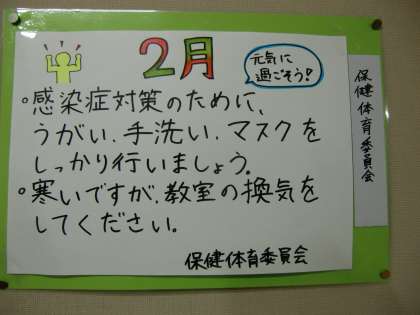 2月
元気に
過ごそう!
。感染症対策のために、
うがい、手洗い、マスクを
しっかり行いましょう。
。寒いですが、教室の換気を
してください。
保健体育委員会
保健体育委員会